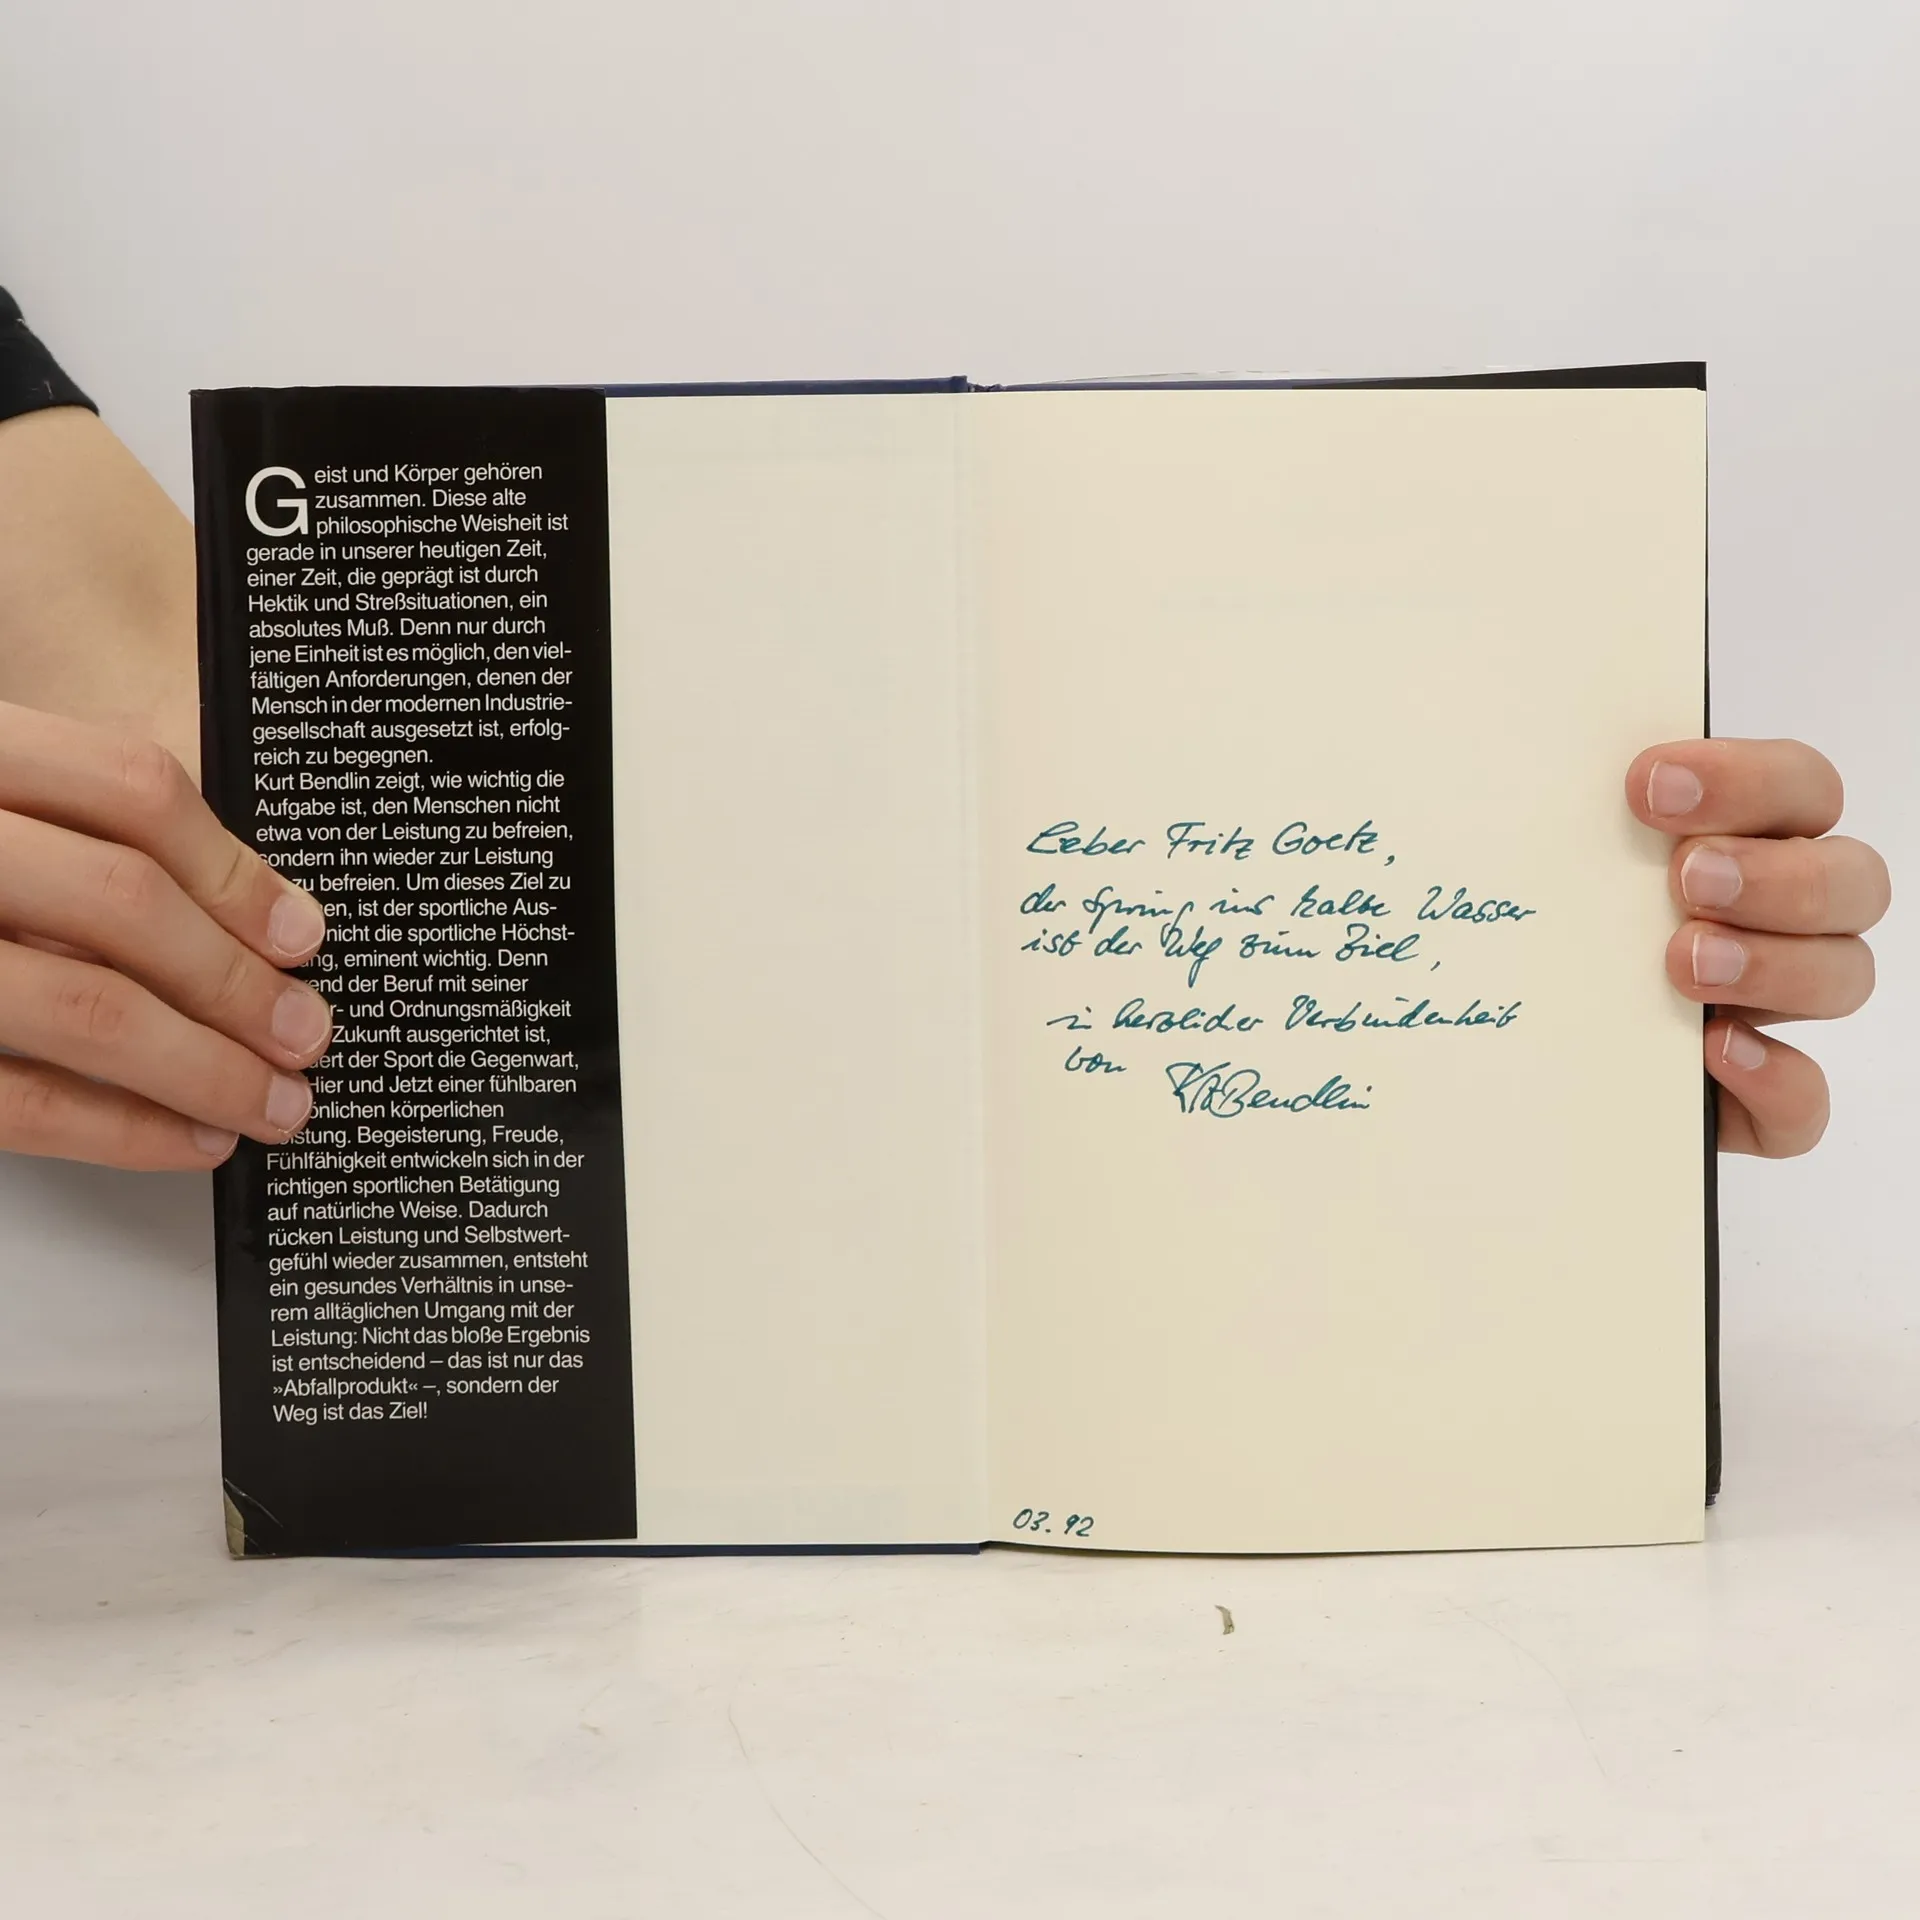 Geist und Körper gehören
zusammen. Diese alte
philosophische Weisheit ist
gerade in unserer heutigen Zeit,
einer Zeit, die geprägt ist durch
Hektik und Streßsituationen, ein
absolutes Muß. Denn nur durch
jene Einheit ist es möglich, den viel-
fältigen Anforderungen, denen der
Mensch in der modernen Industrie-
gesellschaft ausgesetzt ist, erfolg-
reich zu begegnen.
Kurt Bendlin zeigt, wie wichtig die
Aufgabe ist, den Menschen nicht
etwa von der Leistung zu befreien,
sondern ihn wieder zur Leistung
zu befreien. Um dieses Ziel zu
en, ist der sportliche Aus-
nicht die sportliche Höchst-
ng, eminent wichtig. Denn
end der Beruf mit seiner
r- und Ordnungsmäßigkeit
Zukunft ausgerichtet ist,
ert der Sport die Gegenwart,
Hier und Jetzt einer fühlbaren
önlichen körperlichen
Leistung. Begeisterung, Freude,
Fühlfähigkeit entwickeln sich in der
richtigen sportlichen Betätigung
auf natürliche Weise. Dadurch
rücken Leistung und Selbstwert-
gefühl wieder zusammen, entsteht
ein gesundes Verhältnis in unse-
rem alltäglichen Umgang mit der
Leistung: Nicht das bloße Ergebnis
ist entscheidend – das ist nur das
»Abfallprodukt« –, sondern der
Weg ist das Ziel!
Lieber Fritz Goetz,
der Sprung ins kalte Wasser
ist der Weg zum Ziel,
in herzlicher Verbundenheit
von Kurt Bendlin
03.92